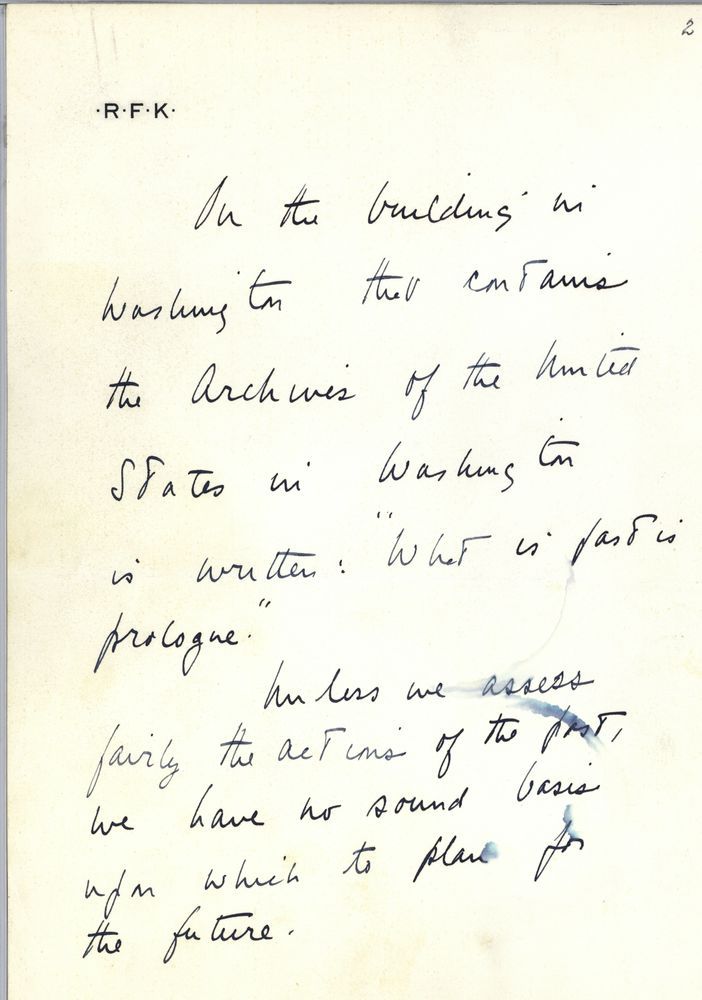 2
·R·F·K·
On the building in
Washington that contains
the Archives of the United
States in Washington
is written: "What is past is
prologue."
Unless we assess
fairly the actions of the past,
we have no sound basis
upon which to plan for
the future.